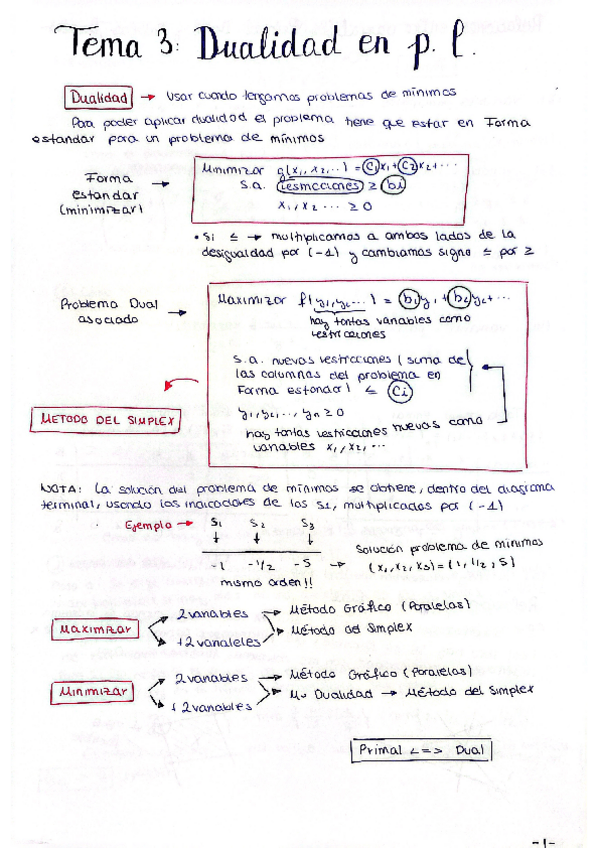 Tema 3: Dualidad en p. l.
Dualidad → Usar cuando tengamos problemas de mínimos
Para poder aplicar dualidad el problema tiene que estar en Forma
estandar para un problema de mínimos
Forma
estandar
(minimizar)
→
Minimizar g(x₁, x₂...) = C₁x₁ + C₂x₂ + ...
s.a. restricciones ≥ bi
x₁, x₂ ... ≥ 0
• Si ≤ → multiplicamos a ambos lados de la
desigualdad por (-1) y cambiamos signo ≤ por ≥
Problema Dual
asociado
→
Maximizar f(y₁, y₂...) = b₁y₁ + b₂y₂ + ...
hay tantas variables como
restricciones
s.a. nuevas restricciones (suma de
las columnas del problema en
Forma estandar) ≤ Ci
y₁, y₂, ..., yn ≥ 0
hay tantas restricciones nuevas como
variables x₁, x₂, ...
METODO DEL SIMPLEX
NOTA: La solución del problema de mínimos se obtiene, dentro del diagrama
terminal, usando los indicadores de las Si, multiplicados por (-1)
Ejemplo → S₁ S₂ S₃
↓ ↓ ↓
-1 -1/2 -5 → Solución problema de mínimos
(x₁, x₂, x₃) = (1, 1/2, 5)
mismo orden!!
Maximizar
2 variables → Método Gráfico (Paralelas)
+2 variables → Método del Simplex
Minimizar
2 variables → Método Gráfico (Paralelas)
+2 variables → Dualidad → Método del Simplex
Primal <=> Dual
-1-